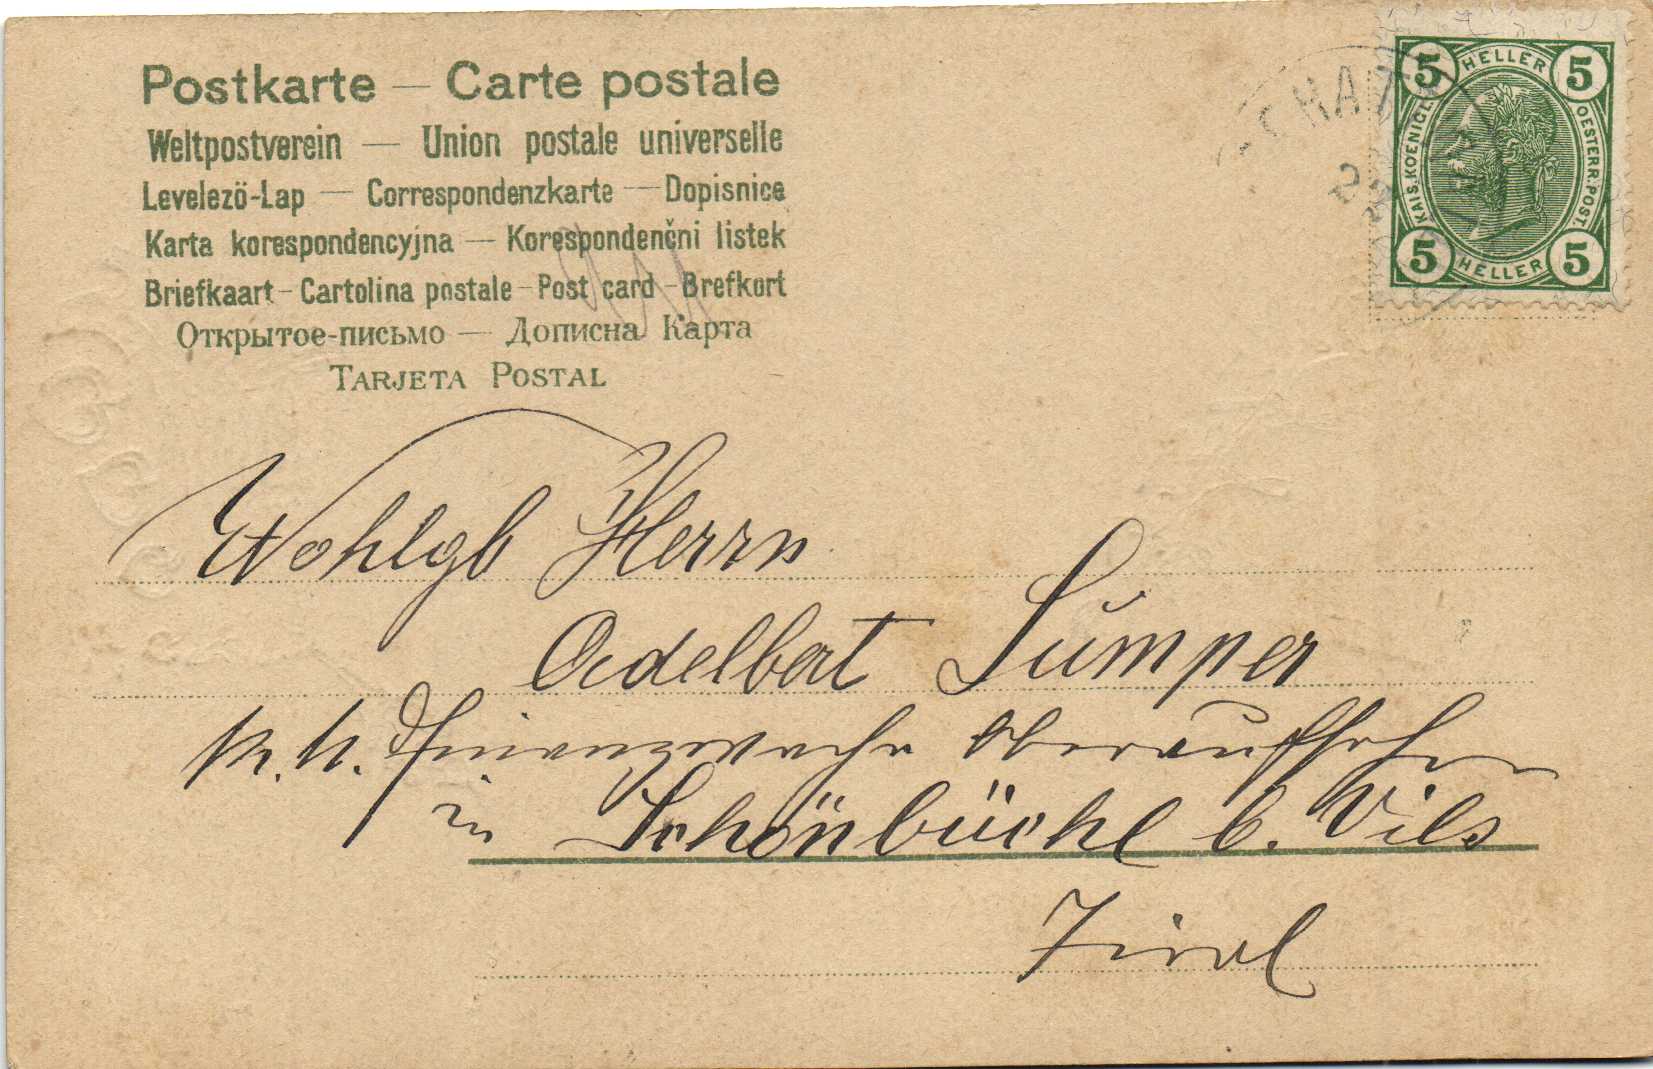 Postkarte — Carte postale
Weltpostverein — Union postale universelle
Levelező-Lap — Correspondenzkarte — Dopisnice
Karta korespondencyjna — Korespondenčni listek
Briefkaart - Cartolina postale - Post card - Brefkort
Открытое-письмо — Дописна Карта
TARJETA POSTAL
5 HELLER 5
KAIS. KOENIGL. OESTERR. POST.
5 HELLER 5
Wohlgb Herrn
Adelbert Sumper
k. k. Finanzwache Oberaufseher
in Schönbüchl b. Vils
Tirol